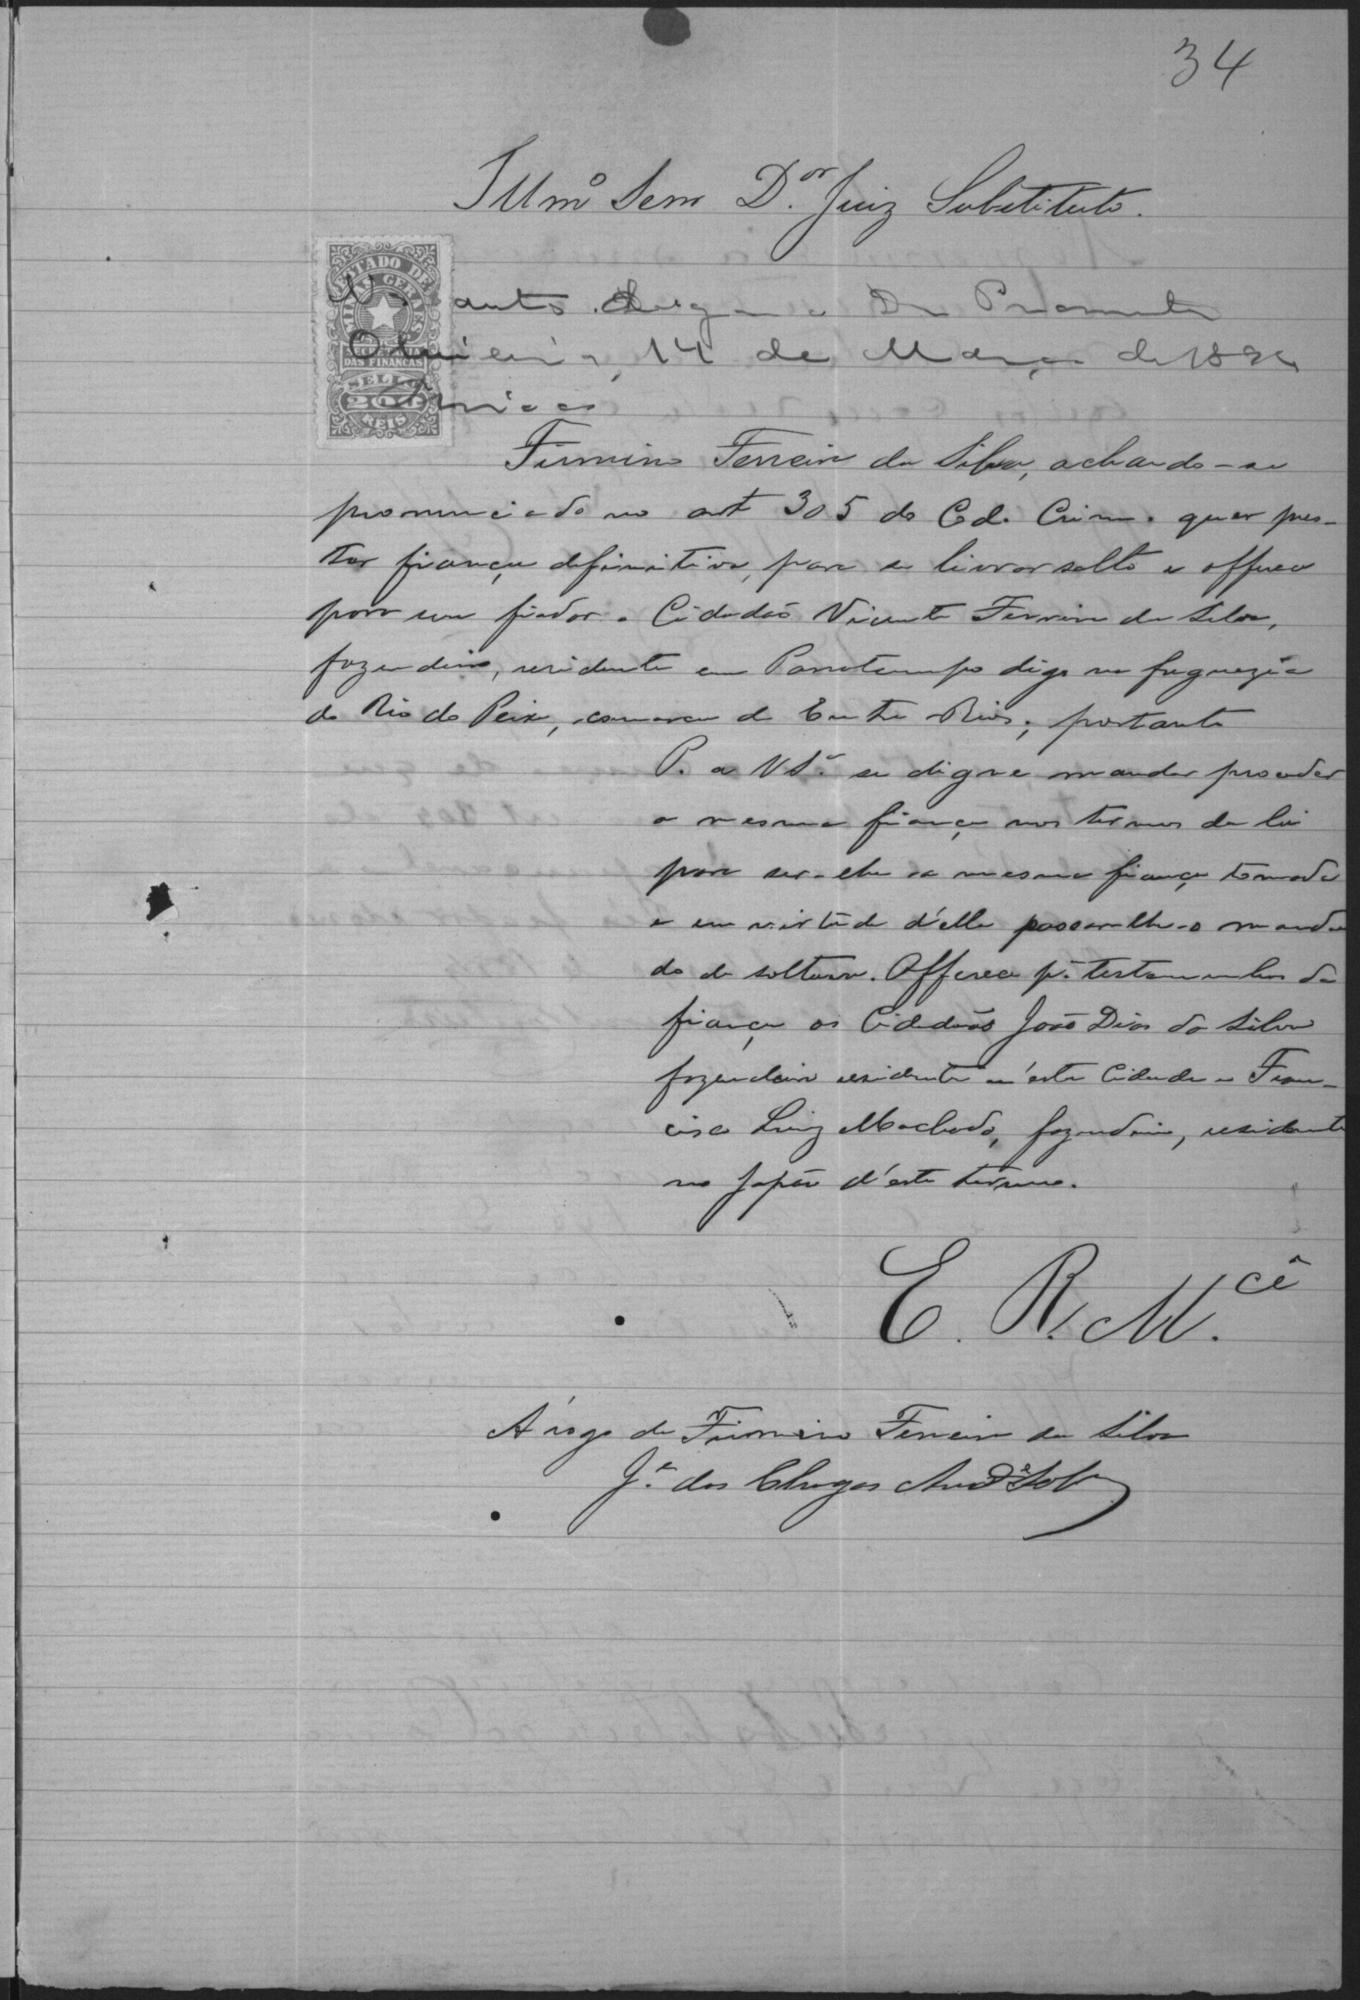 34
Illmo Senr D.or Juiz Substituto.
ESTADO DE
MINAS GERAES
SECRETARIA
DAS FINANÇAS
SELLO
200
REIS
autos diga o Dr Promotor
Oliveira, 14 de Março de 189
Firmino Ferreira da Silva, achando-se
pronunciado no art 305 do Cod. Crim. quer pres-
tar fiança definitiva, para se livrar solto e offerece
para seu fiador o Cidadão Vicente Ferreira da Silva,
fazendeiro, residente em Passatempo digo na freguezia
do Rio do Peixe, comarca de Entre Rios; portanto
P. a V Sª. se digne mandar proceder
a mesma fiança nos termos da lei
para ser-lhe a mesma fiança tomada
e em virtude d'ella passar-lhe-o manda
do de soltura. Offerece pª. testemunhas da
fiança os Cidadãos João Dias da Silva
fazendeiro residente n'esta Cidade e Fran-
cisco Luiz Machado, fazendeiro, residente
no Japão d'este termo.
E. R. M.cê
A rogo de Firmino Ferreira da Silva
J.e das Chagas Andª Sobr